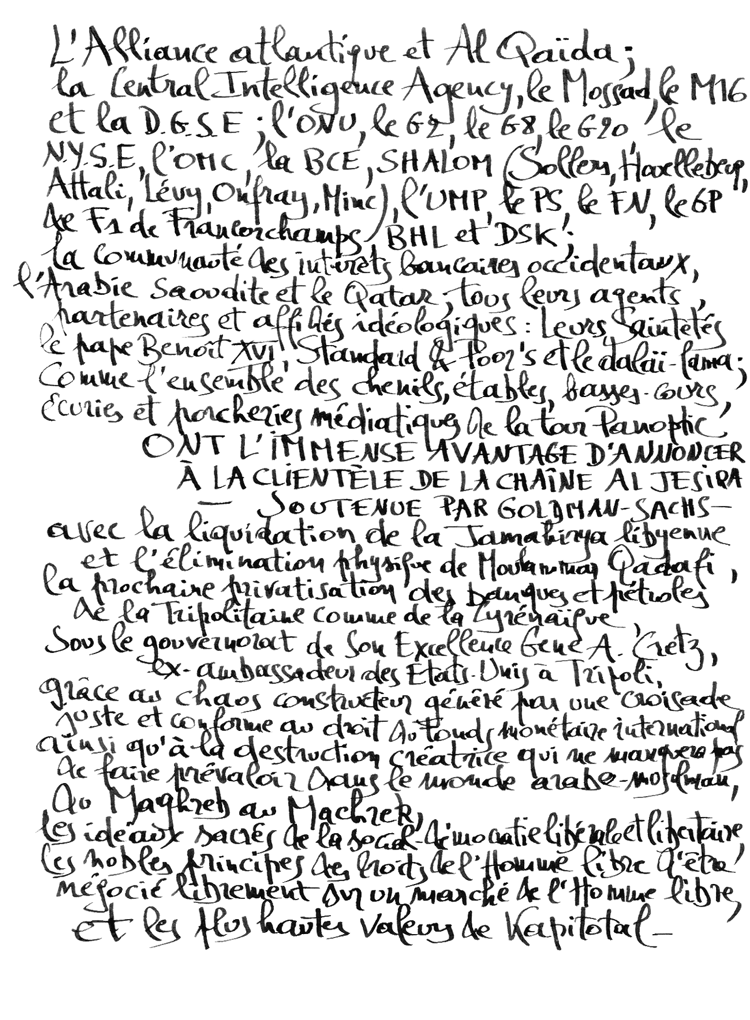 L'Alliance atlantique et Al Qaïda ;
la Central Intelligence Agency, le Mossad, le M16
et la D.G.S.E ; l'ONU, le G2, le G8, le G20, le
N.Y.S.E, l'OMC, la BCE, SHALOM (Sollers, Houellebecq,
Attali, Lévy, Onfray, Minc), l'UMP, le PS, le FN, le GP
de F1 de Francorchamps, BHL et DSK ;
la communauté des intérêts bancaires occidentaux,
l'Arabie Saoudite et le Qatar ; tous leurs agents,
partenaires et affiliés idéologiques : Leurs Saintetés
le pape Benoît XVI, Standard & Poor's et le dalaï-lama ;
comme l'ensemble des chenils, étables, basses-cours,
écuries et porcheries médiatiques de la tour Panoptic,
ONT L'IMMENSE AVANTAGE D'ANNONCER
À LA CLIENTÈLE DE LA CHAÎNE AL JESIRA
— SOUTENUE PAR GOLDMAN-SACHS —
avec la liquidation de la Jamahirya libyenne
et l'élimination physique de Mouammar Qadafi,
la prochaine privatisation des banques et pétroles
de la Tripolitaine comme de la Cyrénaïque,
sous le gouvernorat de Son Excellence Gene A. Cretz,
ex-ambassadeur des Etats-Unis à Tripoli,
grâce au chaos constructeur généré par une croisade
juste et conforme au droit du Fonds monétaire international
ainsi qu'à la destruction créatrice qui ne manquera pas
de faire prévaloir dans le monde arabo-musulman,
du Maghreb au Machrek,
les idéaux sacrés de la social-démocratie libérale et libertaire,
les nobles principes des Droits de l'Homme libre d'être
négocié librement sur un marché de l'Homme libre,
et les plus hautes valeurs de Kapitotal –